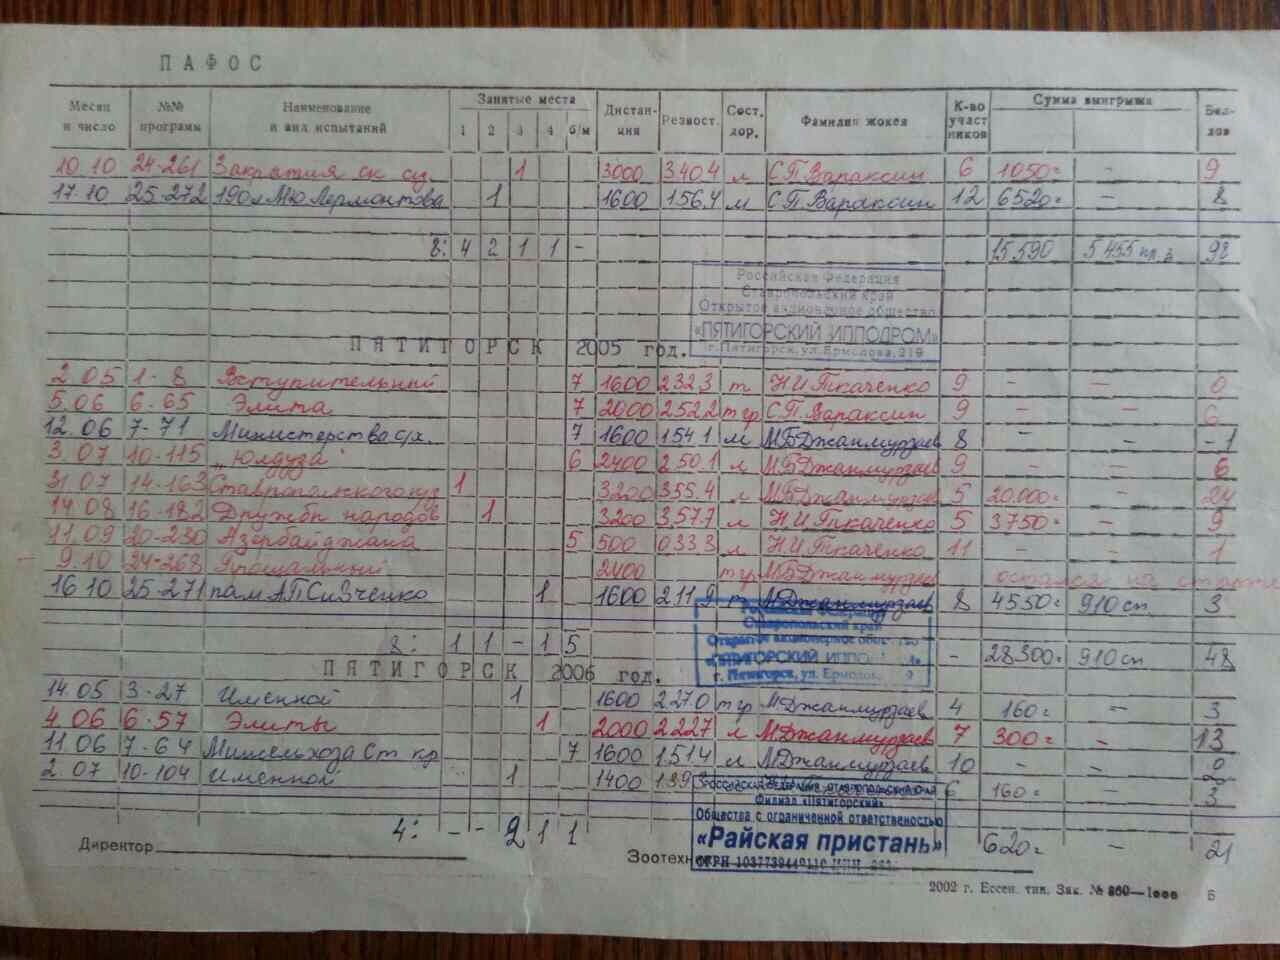 ПАФОС
Месяц и число №№ программ Наименование и вид испытаний Занятые места 1 2 3 4 б/м Дистанция Резвост. Сост. дор. Фамилия жокея К-во участников Сумма выигрыша Баллов
10.10 24-261 Закрытия ск. сез. 1 3000 3.40.4 л С.П.Вараксин 6 1050= - 9
17.10 25-272 190 л М.Ю.Лермонтова 1 1600 1.56.4 м С.П.Вараксин 12 6520= - 8
8: 4 2 1 1 - 15590 5455 98
Российская Федерация
Ставропольский край
Открытое акционерное общество
«ПЯТИГОРСКИЙ ИППОДРОМ»
г.Пятигорск, ул.Ермолова, 219
ПЯТИГОРСК 2005 год.
2.05 1-8 Вступительный 7 1600 2.32.3 т Н.И.Ткаченко 9 - - 0
5.06 6-65 Элита 7 2000 2.52.2 тяг С.П.Вараксин 9 - - 6
12.06 7-71 Министерства с/х. 7 1600 1.54.1 м М.Б.Джанмурзаев 8 - - -1
3.07 10-115 „Юлдуза" 6 2400 2.50.1 л М.Б.Джанмурзаев 9 - - 6
31.07 14-163 Ставропольского 1 3200 3.55.4 л М.Б.Джанмурзаев 5 20.000= - 24
14.08 16-182 Дружбы народов 1 3200 3.57.7 л Н.И.Ткаченко 5 3750= - 9
11.09 20-230 Азербайджана 5 500 0.33.3 л Н.И.Ткаченко 11 - - 1
9.10 24-268 Прощальный 2400 тяг М.Б.Джанмурзаев остался на старте
16.10 25-271 пам А.П.Сизченко 1 1600 2.11.9 т М.Джанмурзаев 8 4550= 910 сп. 3
Российская Федерация
Ставропольский край
Открытое акционерное общество
«ПЯТИГОРСКИЙ ИППОДРОМ»
г. Пятигорск, ул. Ермолова
8: 1 1 - 1 5 - 28300= 910 сп 48
ПЯТИГОРСК 2006 год.
14.05 3-27 Именной 1 1600 2.27.0 тяг М.Джанмурзаев 4 160= - 3
4.06 6-57 Элиты 1 2000 2.22.7 л М.Джанмурзаев 7 300= - 13
11.06 7-64 Минсельхоза Ст кр 7 1600 1.51.4 л М.Джанмурзаев 10 - - 0
2.07 10-104 именной 1 1400 6 160= - 3
РОССИЙСКАЯ ФЕДЕРАЦИЯ, СТАВРОПОЛЬСКИЙ КРАЙ
Филиал «Пятигорский»
Общества с ограниченной ответственостью
«Райская пристань»
4: - - 2 1 1 620= - 21
Директор Зоотехник
2002 г. Ессен. тип. Зак. № 860—1000 Б